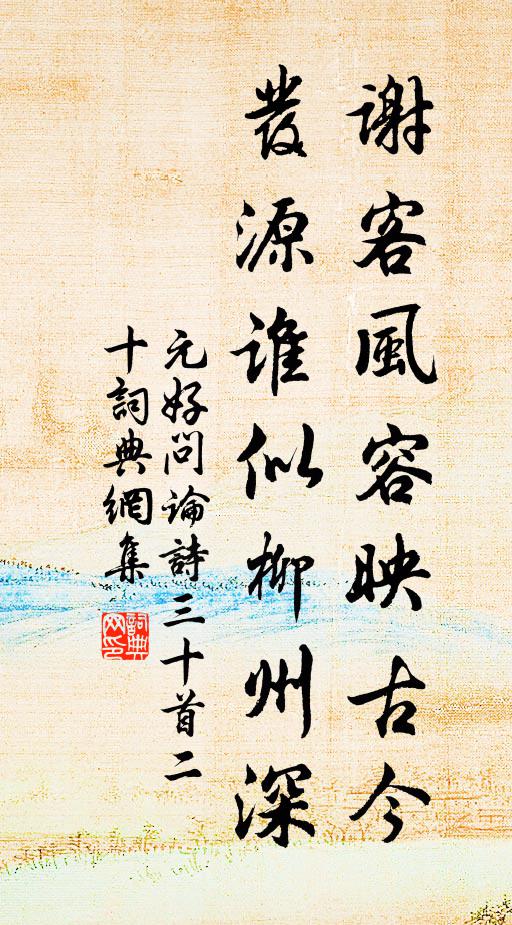 謝客風容映古今
發源誰似柳州深
元好問論詩三十首二
十詞典網集
詞典
网印